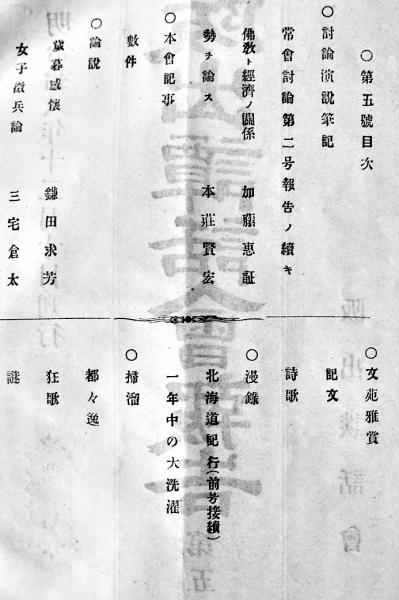 ○第五號目次
○討論演說筆記
常會討論第二号報告ノ續キ
佛敎ト經濟ノ關係　加藤惠証
勢ヲ論ス　本莊賢宏
○本會記事
數件
○論說
歲暮感懷　鎌田求芳
女子徵兵論　三宅倉太
○文苑雅賞
記文
詩歌
○漫錄
北海道記行(前号接續)
一年中の大洗濯
○掃溜
都々逸
狂歌
謎